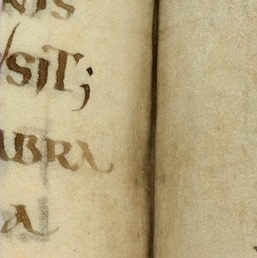 NIS
SIT;
ABRA
A